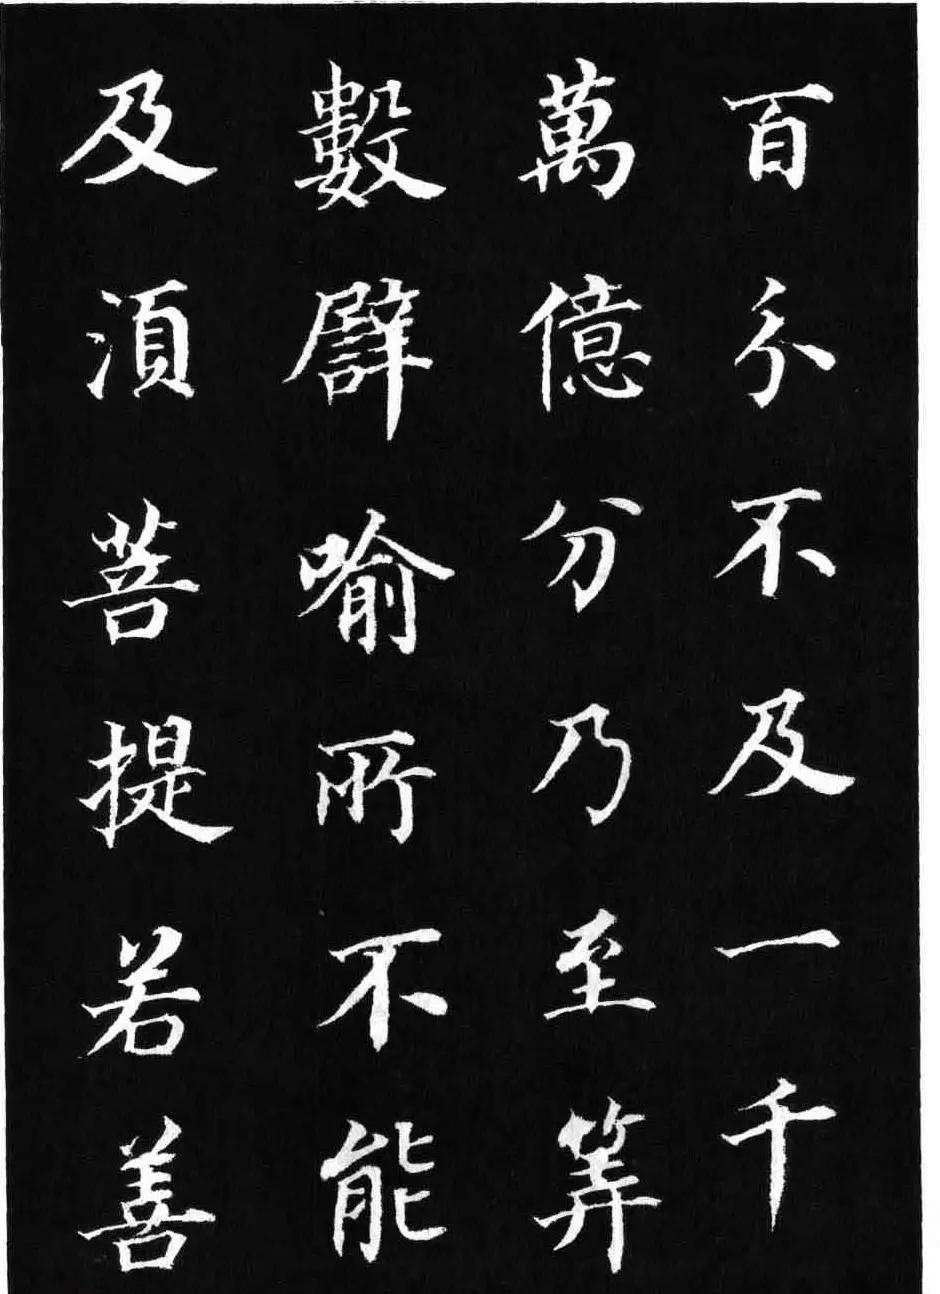 百分不及一千
萬億分乃至筭
數譬喻所不能
及湏菩提若善